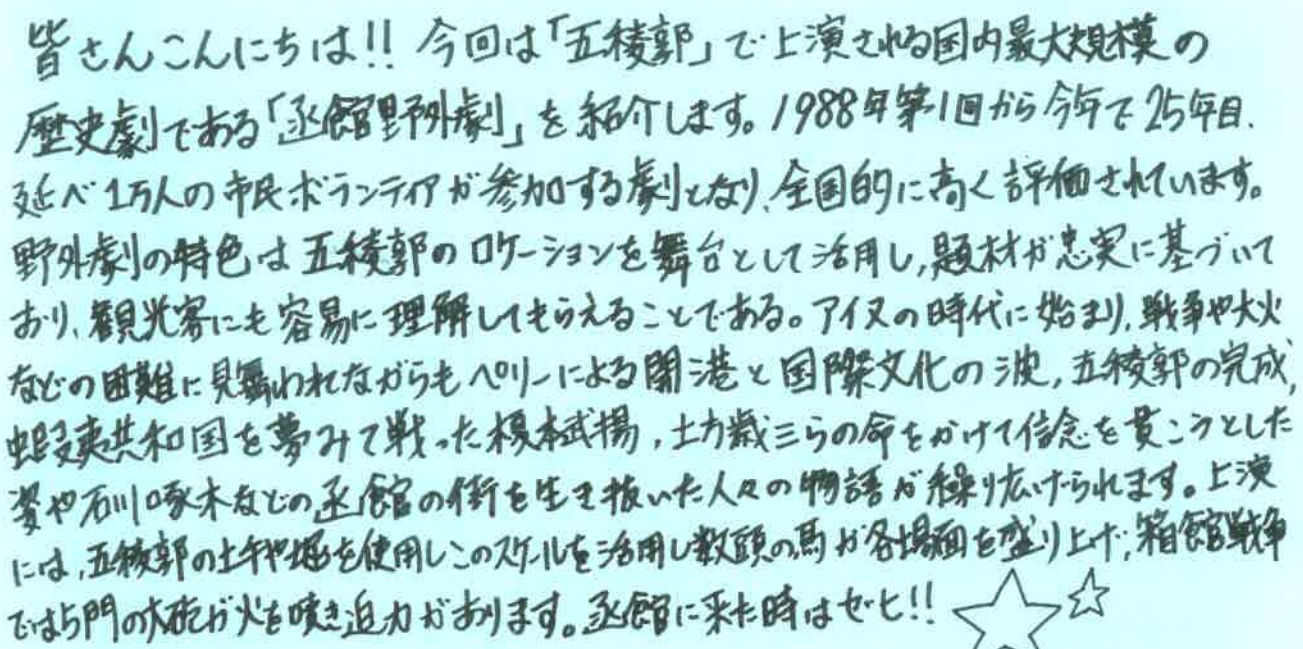 皆さんこんにちは!! 今回は「五稜郭」で上演される国内最大規模の
歴史劇である「函館野外劇」を紹介します。1988年第1回から今年で25年目、
延べ1万人の市民ボランティアが参加する劇となり、全国的に高く評価されています。
野外劇の特色は五稜郭のロケーションを舞台として活用し、題材が忠実に基づいて
おり、観光客にも容易に理解してもらえることである。アイヌの時代に始まり、戦争や大火
などの困難に見舞われながらもペリーによる開港と国際文化の波、五稜郭の完成、
蝦夷共和国を夢みて戦った榎本武揚、土方歳三らの命をかけて信念を貫こうとした
姿や石川啄木などの函館の街を生き抜いた人々の物語が繰り広げられます。上演
には、五稜郭の土手や堀を使用しこのスケールを活用し数頭の馬が各場面を盛り上げ、箱館戦争
では5門の大砲が火を噴き迫力があります。函館に来た時はゼヒ!!